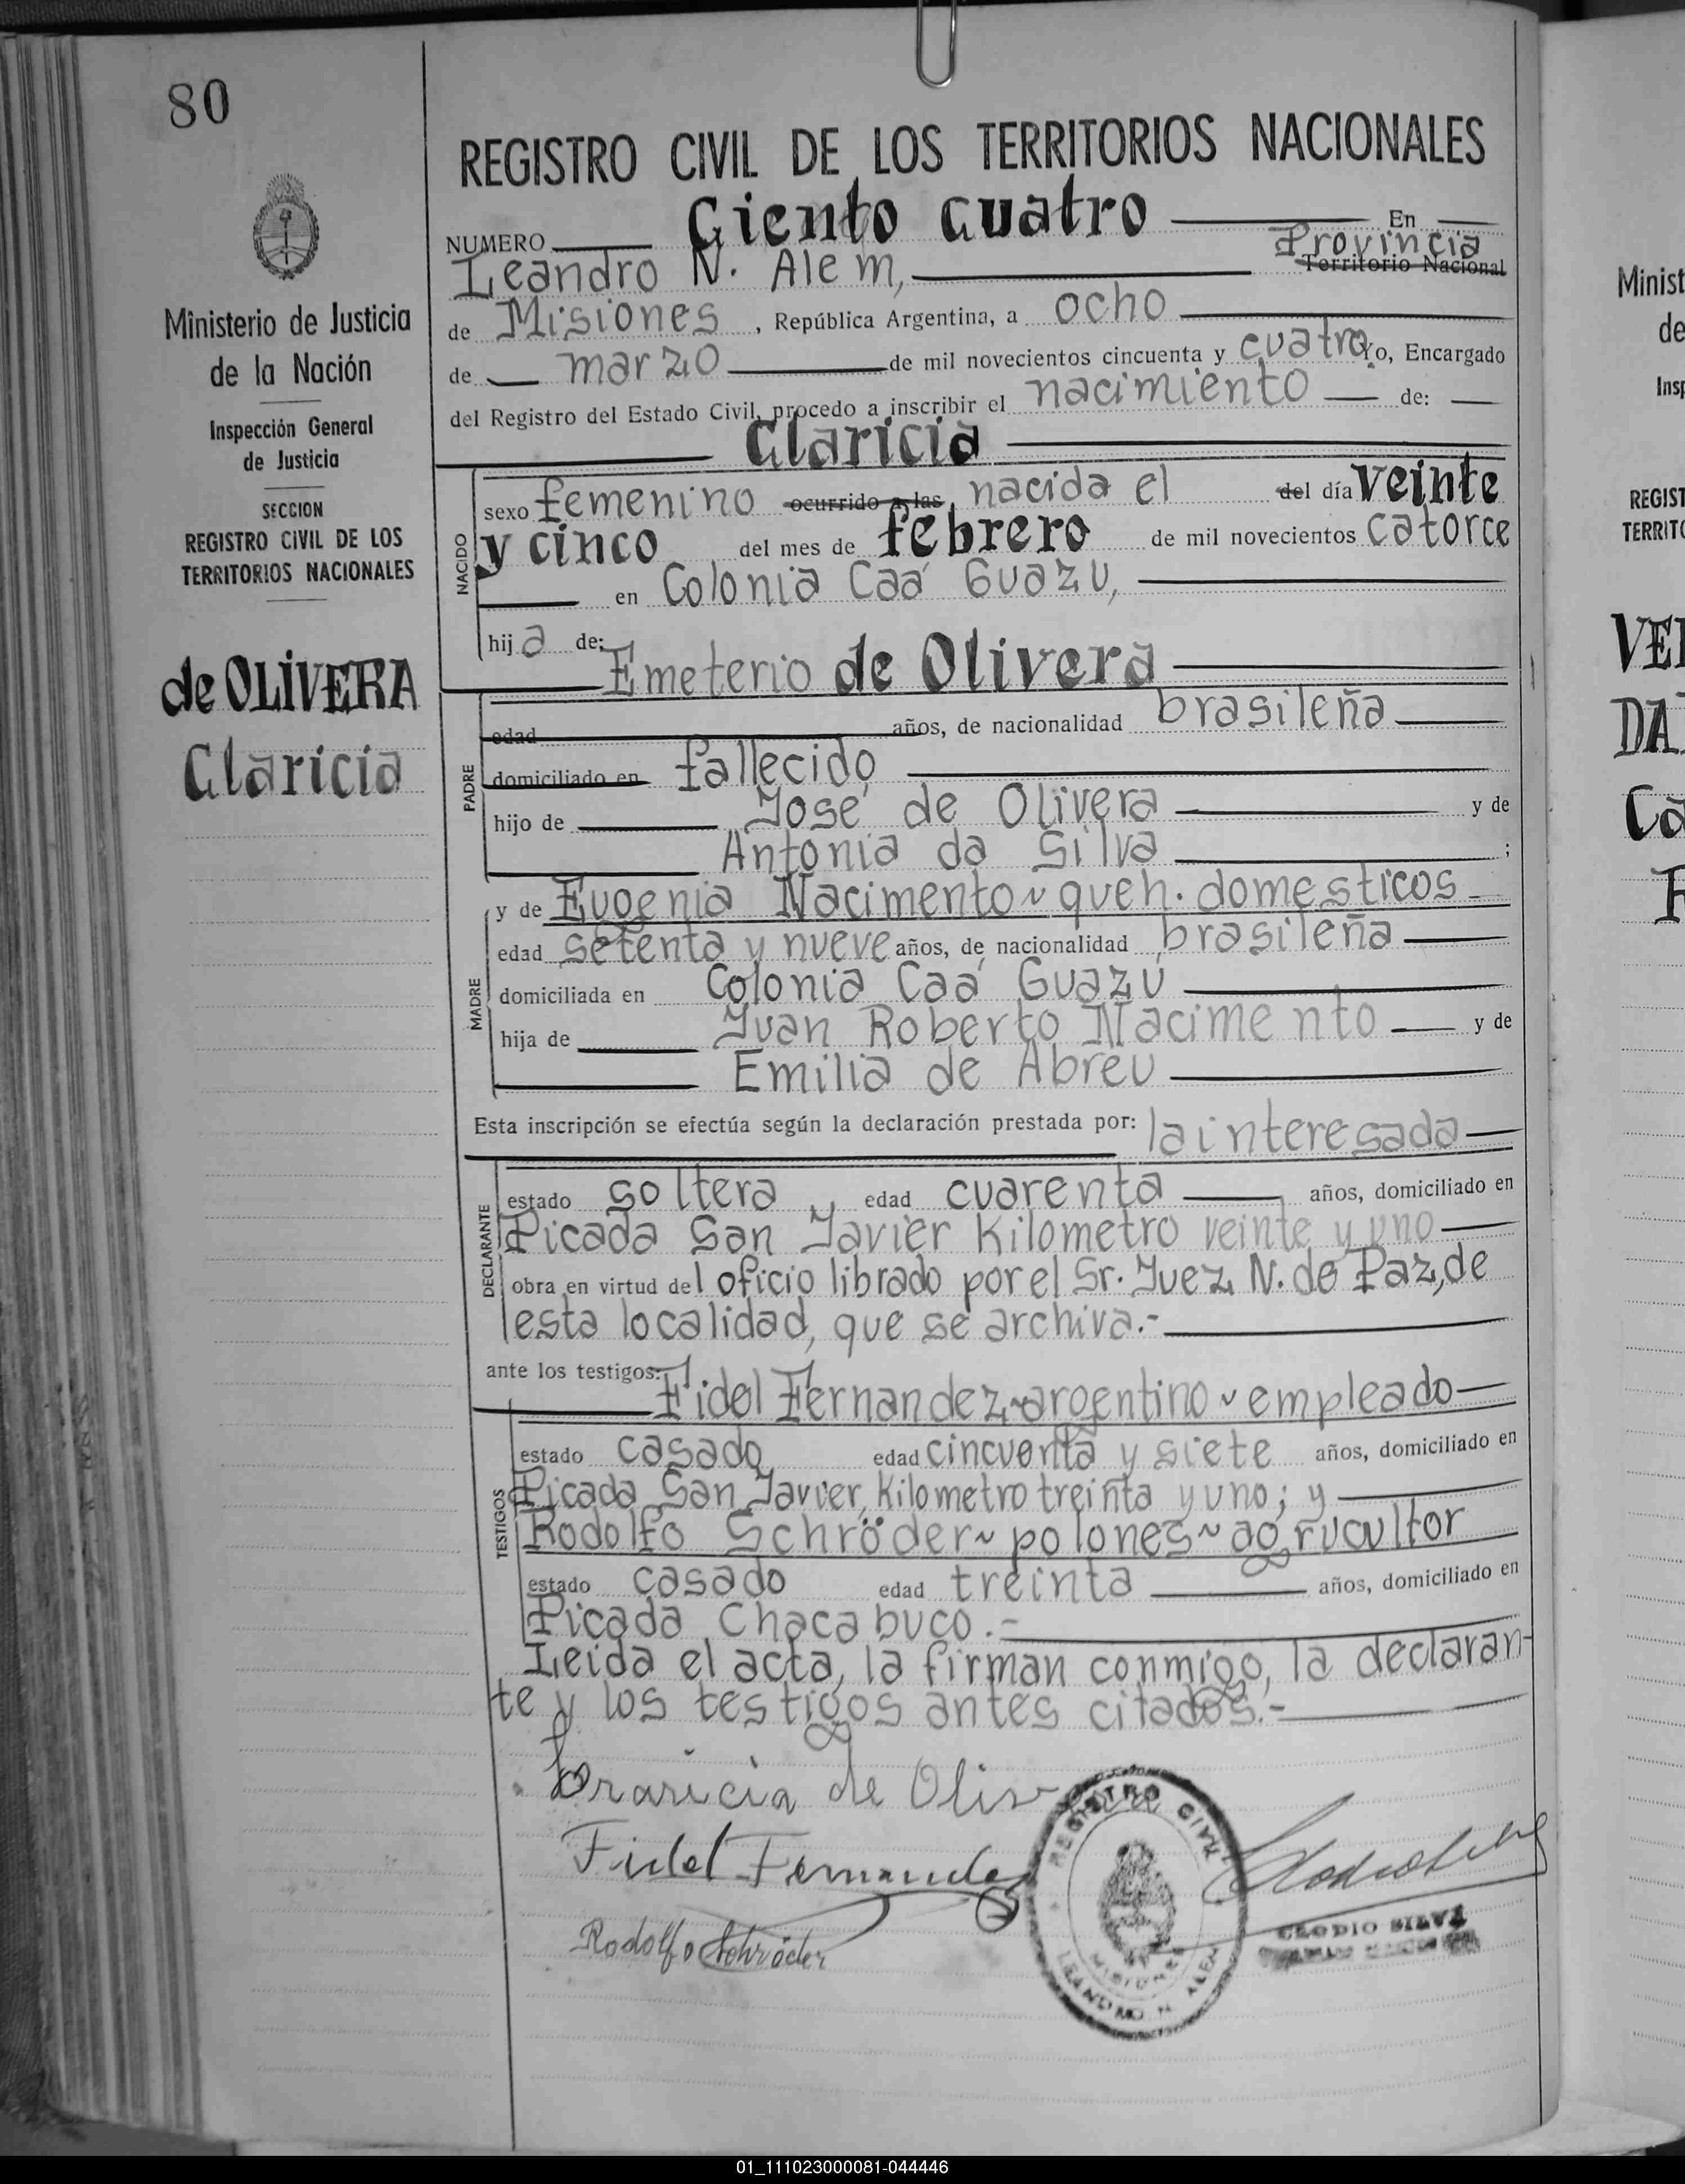 80
Ministerio de Justicia
de la Nación
Inspección General
de Justicia
SECCION
REGISTRO CIVIL DE LOS
TERRITORIOS NACIONALES
de OLIVERA
Claricia
REGISTRO CIVIL DE LOS TERRITORIOS NACIONALES
NUMERO Ciento cuatro En
Leandro N. Alem, Provincia Territorio Nacional
de Misiones, República Argentina, a ocho
de marzo de mil novecientos cincuenta y cuatro Yo, Encargado
del Registro del Estado Civil, procedo a inscribir el nacimiento de:
Claricia
NACIDO
sexo femenino ocurrido a las, nacida el del día veinte
y cinco del mes de febrero de mil novecientos catorce
en Colonia Caá Guazú,
hija de:
Emeterio de Olivera
PADRE
edad años, de nacionalidad brasileña
domiciliado en fallecido
hijo de José de Olivera y de
Antonia da Silva ;
MADRE
y de Eugenia Nacimento ~ queh. domesticos
edad setenta y nueve años, de nacionalidad brasileña
domiciliada en Colonia Caá Guazú
hija de Juan Roberto Nacimento y de
Emilia de Abreu
Esta inscripción se efectúa según la declaración prestada por: la interesada
DECLARANTE
estado soltera, edad cuarenta años, domiciliado en
Picada San Javier Kilometro veinte y uno
obra en virtud del oficio librado por el Sr. Juez N. de Paz, de
esta localidad, que se archiva.-
ante los testigos:
Fidel Fernandez ~ argentino ~ empleado
TESTIGOS
estado casado edad cincuenta y siete años, domiciliado en
Picada San Javier, Kilometro treinta y uno; y
Rodolfo Schröder ~ polones ~ agrucultor
estado casado edad treinta años, domiciliado en
Picada Chacabuco.-
Leida el acta, la firman conmigo, la declaran-
te y los testigos antes citados.-
de Olivera
Fidel Fernandez
Rodolfo Schröder
REGISTRO CIVIL
MISIONES
LEANDRO N. ALEM
CLODIO SILVA
Minist
de
Insp
REGIST
TERRITO
VE
DA
Ca
F
01_111023000081-044446